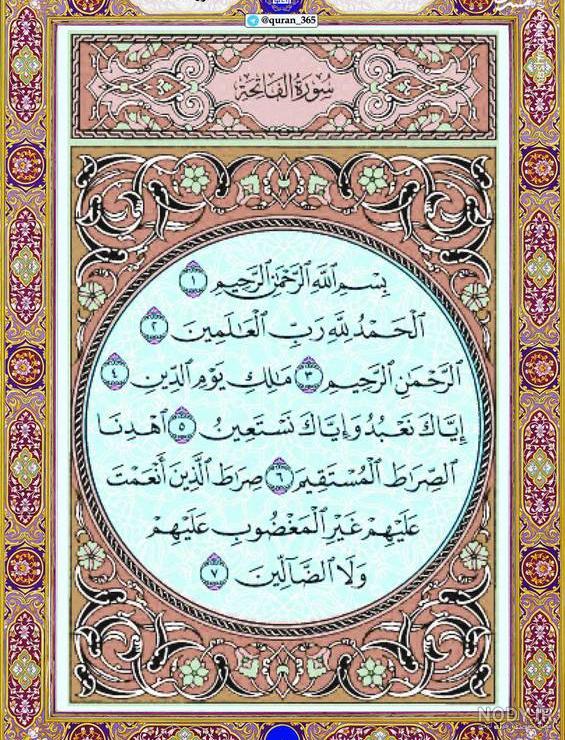 @quran_365
سُورَةُ الفَاتِحَةِ
بِسْمِ اللَّهِ الرَّحْمَٰنِ الرَّحِيمِ ١
الْحَمْدُ لِلَّهِ رَبِّ الْعَالَمِينَ ٢
الرَّحْمَٰنِ الرَّحِيمِ ٣ مَالِكِ يَوْمِ الدِّينِ ٤
إِيَّاكَ نَعْبُدُ وَإِيَّاكَ نَسْتَعِينُ ٥ اهْدِنَا
الصِّرَاطَ الْمُسْتَقِيمَ ٦ صِرَاطَ الَّذِينَ أَنْعَمْتَ
عَلَيْهِمْ غَيْرِ الْمَغْضُوبِ عَلَيْهِمْ
وَلَا الضَّالِّينَ ٧